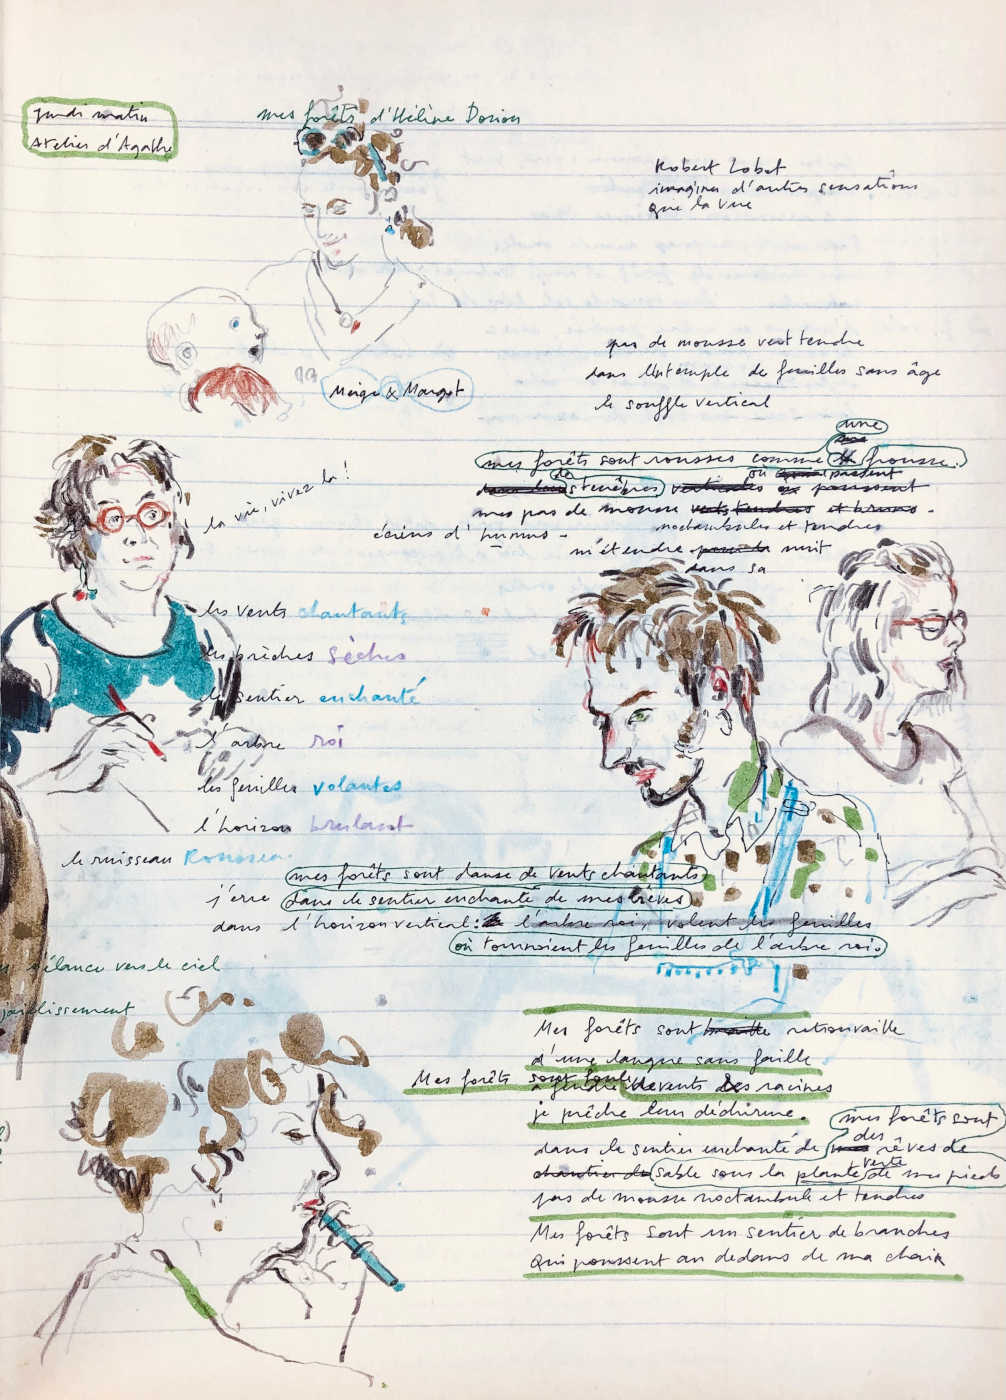 jeudi matin
Atelier d'Agathe
mes forêts d'Hélène Dorion
Robert Lobet
imaginer d'autres sensations
que la vue
pas de mousse vert tendre
dans l'temple de feuilles sans âge
le souffle vertical
Meige & Margot
la vie, vivez la !
une
mes forêts sont rousses comme frousse.
ténèbres où poussent
mes pas de mousse verts tendres et bruns.
noctambules et tendres
écrins d'humus -
m'étendre nuit
dans sa
les vents chantants
les brèches sèches
le sentier enchanté
l'arbre roi
les feuilles volantes
l'horizon brulant
le ruisseau
mes forêts sont danse de vents chantants
j'erre dans le sentier enchanté de mes rêves
dans l'horizon vertical : l'arbre roi, volent les feuilles
où tournoient les feuilles de l'arbre roi.
s'élance vers le ciel
jaillissement
Mes forêts sont retrouvaille
d'une langue sans faille
Mes forêts
vents des racines
je prêche leur déchirure.
mes forêts sont
des
dans le sentier enchanté de rêves de
verte
chantier de sable sous la plante de mes pieds
pas de mousse noctambule et tendres
Mes forêts sont un sentier de branches
Qui poussent au dedans de ma chair